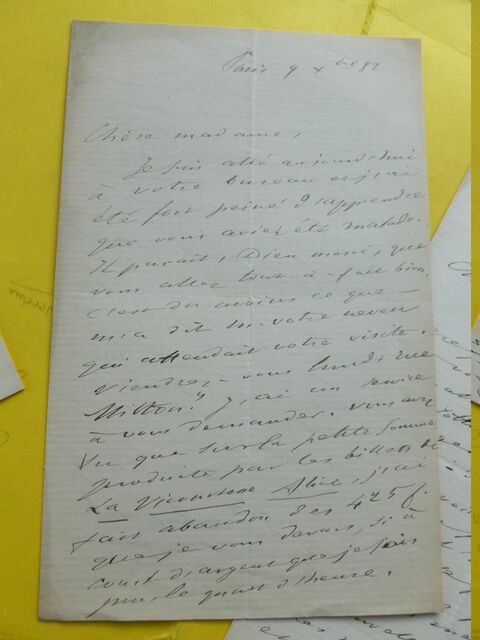 Paris 9 Xbre 82
Chère madame,
Je suis allé aujourd'hui
à votre bureau et j'ai
été fort peiné d'apprendre
que vous aviez été malade.
Il paraît, Dieu merci, que
vous allez tout-à-fait bien,
c'est du moins ce que
m'a dit M. votre neveu
qui attendait votre visite.
Viendrez-vous lundi rue
Milton? J'ai un service
à vous demander. Vous avez
vu que sur la petite somme
produite par les billets de
La Vicomtesse Alice, j'ai
fait abandon des 425 f.
que je vous devais, si à
court d'argent que je sois
pour le quart d'heure.